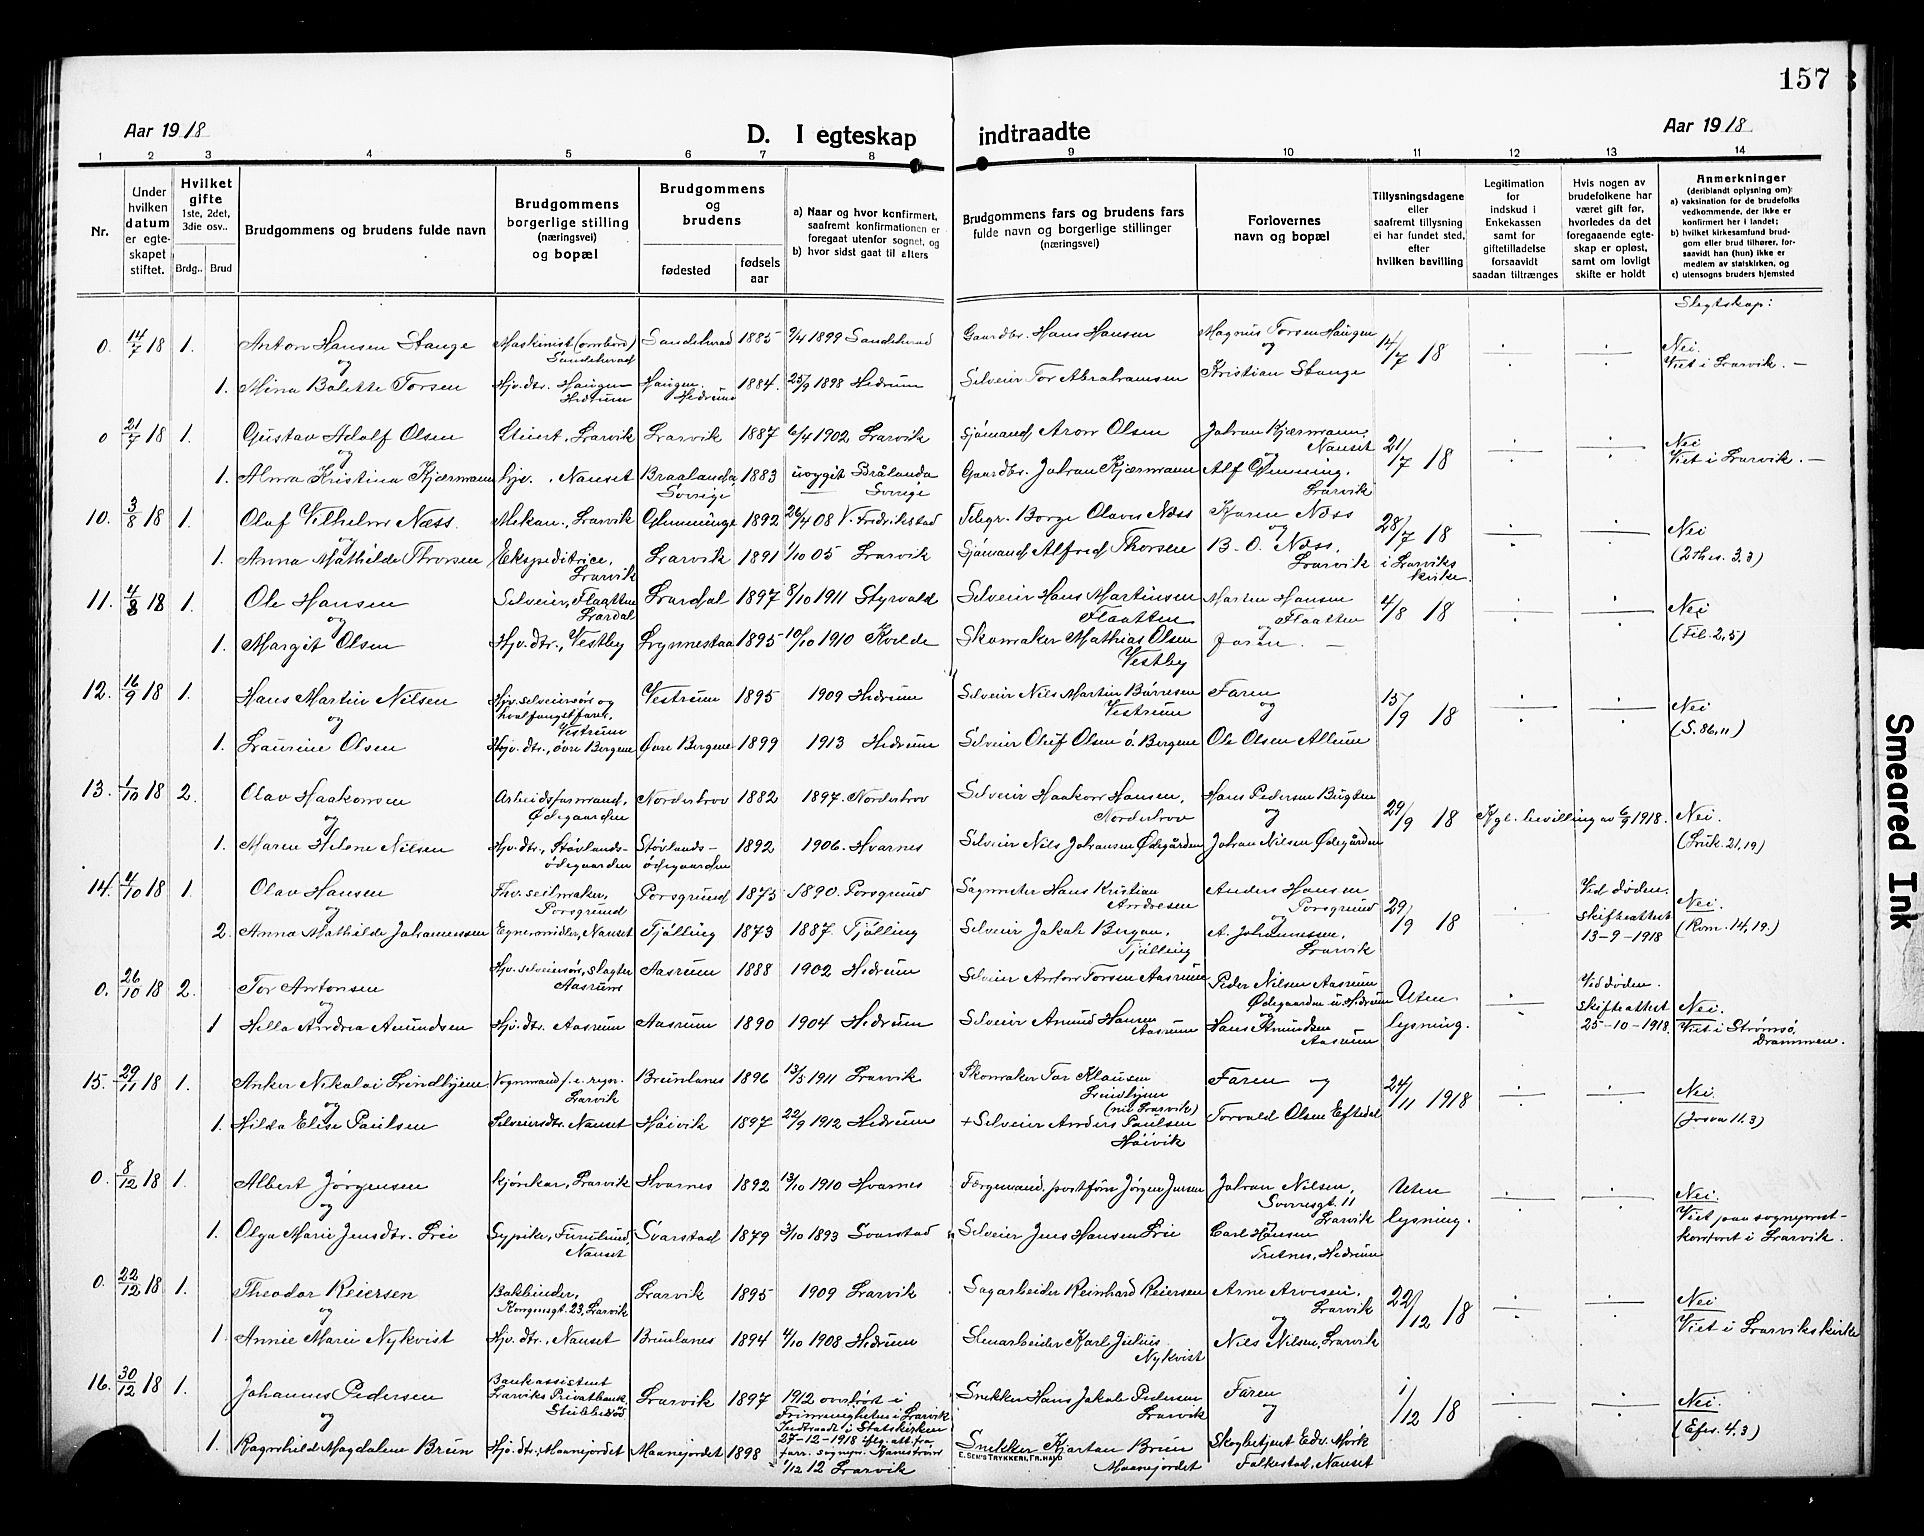 157
Aar 1918
D. I egteskap indtraadte
Aar 1918
1 2 3 4 5 6 7 8 9 10 11 12 13 14
Nr.
Under hvilken datum er egteskapet stiftet.
Hvilket gifte 1ste, 2det, 3die osv..
Brdg.. Brud
Brudgommens og brudens fulde navn
Brudgommens borgerlige stilling (næringsvei) og bopæl
Brudgommens og brudens
fødested
fødsels aar
a) Naar og hvor konfirmert, saafremt konfirmationen er foregaat utenfor sognet, og
b) hvor sidst gaat til alters
Brudgommens fars og brudens fars fulde navn og borgerlige stillinger (næringsvei)
Forlovernes navn og bopæl
Tillysningsdagene eller saafremt tillysning ei har fundet sted, efter hvilken bevilling
Legitimation for indskud i Enkekassen samt for giftetilladelse forsaavidt saadan tiltrænges
Hvis nogen av brudefolkene har været gift før, hvorledes da det foregaaende egteskap er opløst, samt om lovligt skifte er holdt
Anmerkninger (deriblandt oplysning om):
a) vaksination for de brudefolks vedkommende, der ikke er konfirmert her i landet;
b) hvilket kirkesamfund brudgom eller brud tilhører, forsaavidt han (hun) ikke er medlem av statskirken, og
c) utensogns bruders hjemsted
Slegtskap:
0. 14/7 18 1. Anton Hansen Stange Maskinist (ombord) Sandeherad Sandeherad 1885 9/4 1899 Sandeherad Gaardbr. Hans Hansen Magnus Torsen Haugen 14/7 18 Nei.
og Viet i Larvik. —
1. Mina Balette Torsen Hjv. dtr. Haugen Hedrum Haugen. Hedrum 1884. 25/9 1898 Hedrum Selveier Tor Abrahamsen Kristian Stange
0 21/7 18 1. Gustav Adolf Olsen Larvik Larvik 1887 6/4 1902 Larvik Sjømand Aron Olsen Johan Kjærmann, Nanset 21/7 18 Nei
og Viet i Larvik. —
1. Alma Kristina Kjærmann Hjv. , Nanset Braalanda, Sverige 1883 uoygit Brålanda Sverige Gaardbr. Johan Kjærmann Alf Glenning, Larvik
10. 3/8 18 1. Olaf Vilhelm Næss. Mekan., Larvik Glemminge 1892 26/4 08 V. Fredrikstad Telegr. Borge Olaves Næss Karen Næss 28/7 18 Nei
og i Larviks kirke. (2 Thes. 3,3)
1. Anna Mathilde Thorsen Ekspeditrice, Larvik Larvik 1891 1/10 05 Larvik Sjømand Alfred Thorsen B. O. Næss, Larvik
11. 4/8 18 1. Ole Hansen Selveier, Flaatten Lardal Lardal 1897 8/10 1911 Styrvold Selveier Hans Martinsen Flaatten Marten Hansen Flaatten 4/8 18 Nei
og (Fil. 2,5)
1. Margit Olsen Hjv. dtr., Vestby Brynnestaa 1895 10/10 1910 Kvelde Skomaker Mathias Olsen Vestby Faren. —
12. 16/9 18 1. Hans Martin Nilsen Hjv. selveiersøn og hvalfangstfarer, Vestrum Vestrum 1895 1909 Hedrum Selveier Nils Martin Børresen Vestrum Faren 15/9 18 Nei
og (S. 86,11)
1. Laurine Olsen Hjv. dtr., øvre Bergene Øvre Bergene 1899 1913 Hedrum Selveier Oluf Olsen ö. Bergene Ole Olsen Allum
13. 1/10 18 2. Olav Haakonsen Arbeidsformand, Ødegaarden Norderhov 1882 1897. Norderhov Selveier Haakon Hansen, Norderhov Hans Pedersen Bugten 29/9 18 Kgl. bevilling av 6/9 1918. Nei.
og (Luk. 21,19)
1. Maren Helene Nilsen Hjv. dtr., Støvlands-ödegaarden Støvlands-ödegaarden 1892 1906. Hvarnes Selveier Nils Johansen Ødegården Johan Nilsen Ødegården
14. 4/10 18 1. Olav Hansen Fhv. seilmaker, Porsgrund Porsgrund 1873 1890. Porsgrund Sagmeter Hans Kristian Andresen Anders Hansen Porsgrund 29/9 18 Ved döden. Skifteattest 13-9-1918 Nei.
og (Rom. 14,19.)
2. Anna Mathilde Johannessen Egne midler, Nanset Tjølling 1873 1887. Tjølling Selveier Jakob Bergan, Tjølling A. Johannessen, Larvik
0. 26/10 18 2. Tor Antonsen Hjv. selveiersøn, slagter Aasrum Aasrum 1888 1902 Hedrum Selveier Anton Torsen Aasrum Peder Nilsen Aasrum Ødegaarden u. Hedrum Uten lysning. Ved döden. Skifteattest 25-10-1918. Nei.
og Viet i Strømsö, Drammen.
1 Hella Andrea Amundsen Hjv. dtr. Aasrum Aasrum 1890 1904 Hedrum Selveier Amund Hansen Aasrum Hans Amundsen Aasrum
15. 29/11 18 1. Anker Nikolai Lindhjem Vognmand f. e. regn. Larvik Brunlanes 1896 13/5 1911 Larvik Skomaker Tor Klausen Lindhjem (nu Larvik) Faren og 24/11 1918 Nei.
og (Josva 11.3)
1. Hilda Elise Paulsen Selveiersdtr. Nanset Håivik 1897 22/9 1912 Hedrum + Selveier Anders Paulsen Håivik Torvald Olsen Eftedal
0. 8/12 18 1. Albert Jørgensen kjørekar, Larvik Hvarnes 1892 13/10 1910 Hvarnes Færgemand, Jørgen Jensen Johan Nilsen, Sverresgt. 11 Larvik Uten lysning. Nei.
og Viet paa sogneprestkontoret i Larvik.
1. Olga Marie Jensdtr. Lie Sypike, Furulund, Nanset Svarstad 1879 3/10 1893 Svarstad Selveier Jens Hansen Lie Carl Hansen Tretnes, Hedrum
0. 22/12 18 1. Theodor Reiersen Bokbinder, Kongensgt. 23, Larvik Larvik 1895 1909 Larvik Sagarbeider Reinhard Reiersen Arne Arvesen, Larvik 22/12 18 Nei
og Viet i Larviks kirke
1. Annie Marie Nykvist Hjv. dtr., Nanset Brunlanes 1894 4/10 1908 Hedrum Stenarbeider Karl Julius Nykvist Nils Nilsen, Larvik
16. 30/12 18 1. Johannes Pedersen Bankassistent Larviks Privatbank, Stubberød Larvik 1897 1912 overhört i Frimenigheten i Larvik Indtraadt i Statskirken 27-12-1918 iflg. att. fra Snekker Hans Jakob Pedersen Larvik Faren 1/12 18 Nei.
og (Efes. 4,3)
1. Ragnhild Magdalene Brun Hjv. dtr., Maanejordet Maanejordet 1898 1/12 12 Larvik Snekker Kjartan Brun Maanejordet Skogbetjent Edv. Mork Falkestad, Nanset
E. SEM'S TRYKKERI, FR.HALD
Smeared Ink